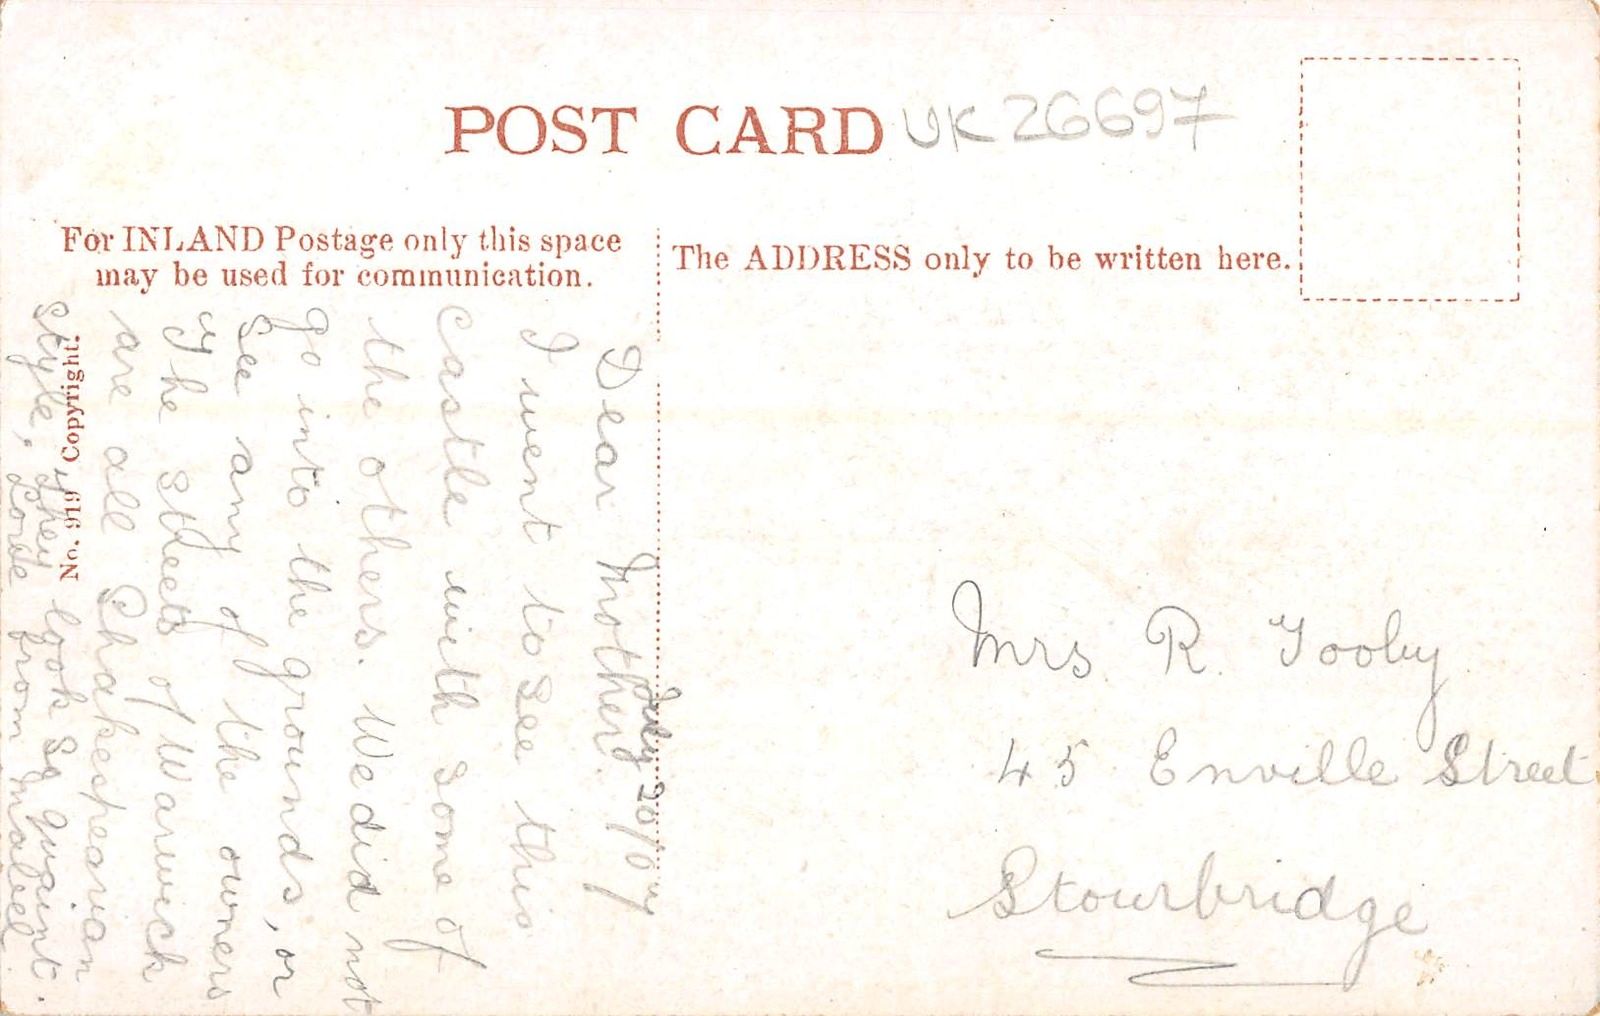 POST CARD UK 26697
For INLAND Postage only this space
may be used for communication.
The ADDRESS only to be written here.
No. 919 Copyright.
July 20/07
Dear Mother.
I went to see this
Castle with some of
the others. We did not
go into the grounds, or
see any of the owners
The streets of Warwick
are all Shakespearian
style, they look so quaint.
Love from Mabel.
Mrs R. Tooby
45 Enville Street
Stourbridge